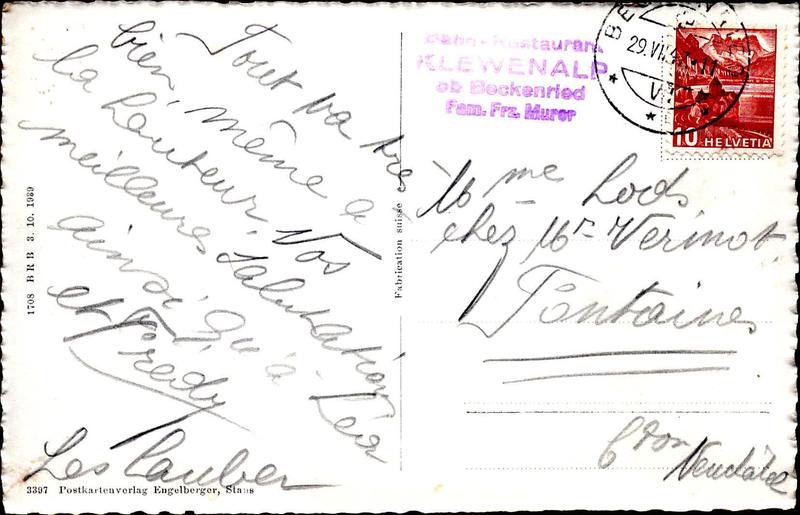 Tout va très
bien, même à
la hauteur. Nos
meilleures salutations
ainsi qu'à Léa
et Fredy
Les Lauber
1708 BRB 3. 10. 1939
3397 Postkartenverlag Engelberger, Stans
Fabrication suisse
Bahn-Restaurant
KLEWENALP
ob Beckenried
Fam. Frz. Murer
29.VII
10 HELVETIA
Mme Lods
chez Mr Verinot.
Fontaines
Cton Neuchâtel